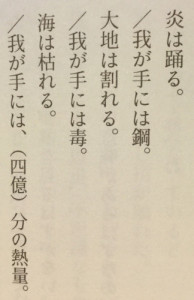 炎は踊る。
／我が手には鋼。
大地は割れる。
／我が手には毒。
海は枯れる。
／我が手には、（四億）分の熱量。